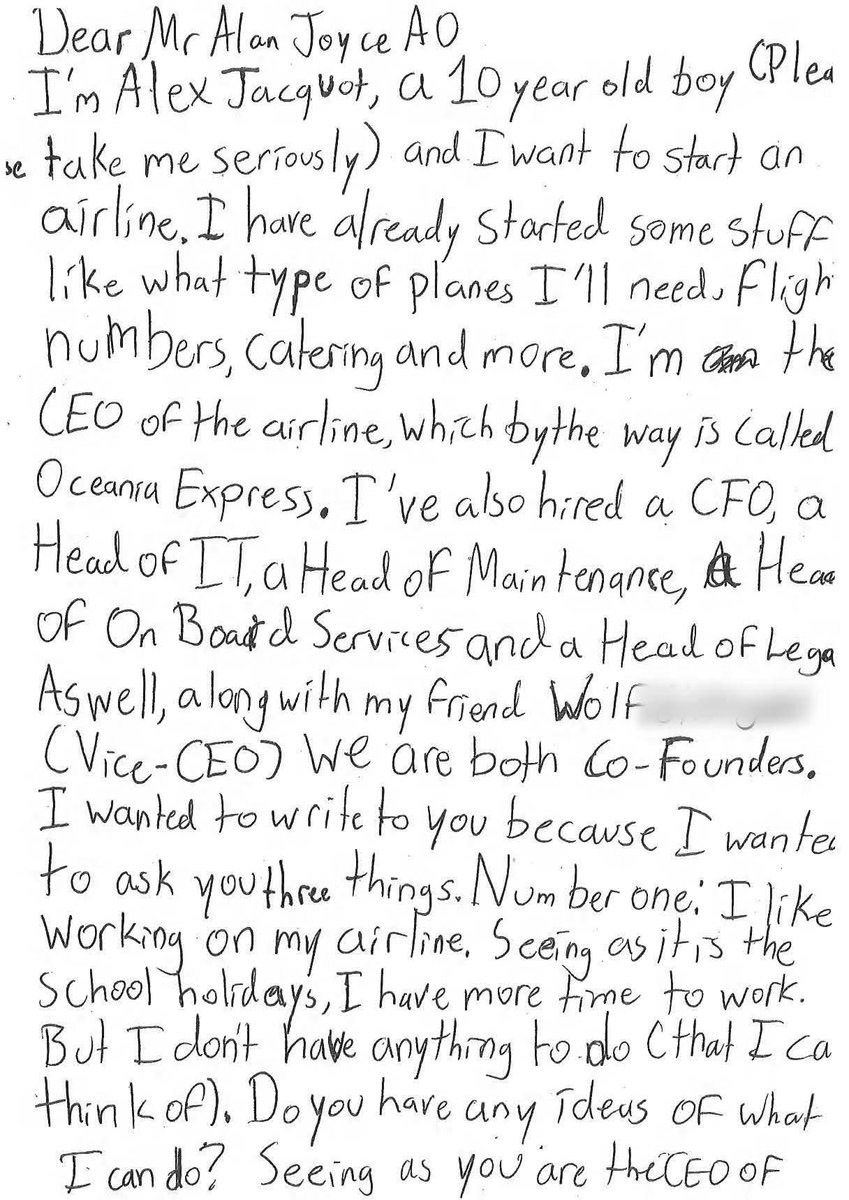 Dear Mr Alan Joyce AO
I'm Alex Jacquot, a 10 year old boy (Plea
se take me seriously) and I want to start an
airline. I have already started some stuff
like what type of planes I'll need, fligh
numbers, catering and more. I'm the
CEO of the airline, which by the way is called
Oceania Express. I've also hired a CFO, a
Head of IT, a Head of Maintenance, A Hea
of On Board Services and a Head of Lega
Aswell, along with my friend Wolf
(Vice-CEO) We are both Co-Founders.
I wanted to write to you because I wante
to ask you three things. Number one: I like
working on my airline. Seeing as it is the
school holidays, I have more time to work.
But I don't have anything to do (that I ca
think of). Do you have any ideas of what
I can do? Seeing as you are the CEO of